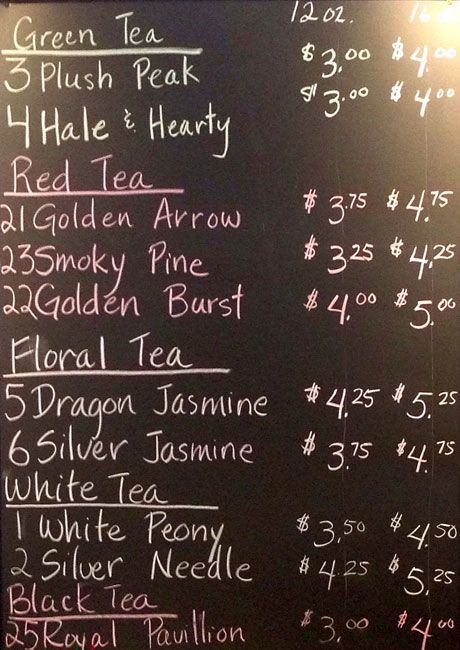 12 oz. 16 oz.
Green Tea
3 Plush Peak $3.00 $4.00
4 Hale & Hearty $3.00 $4.00
Red Tea
21 Golden Arrow $3.75 $4.75
23 Smoky Pine $3.25 $4.25
22 Golden Burst $4.00 $5.00
Floral Tea
5 Dragon Jasmine $4.25 $5.25
6 Silver Jasmine $3.75 $4.75
White Tea
1 White Peony $3.50 $4.50
2 Silver Needle $4.25 $5.25
Black Tea
25 Royal Pavillion $3.00 $4.00